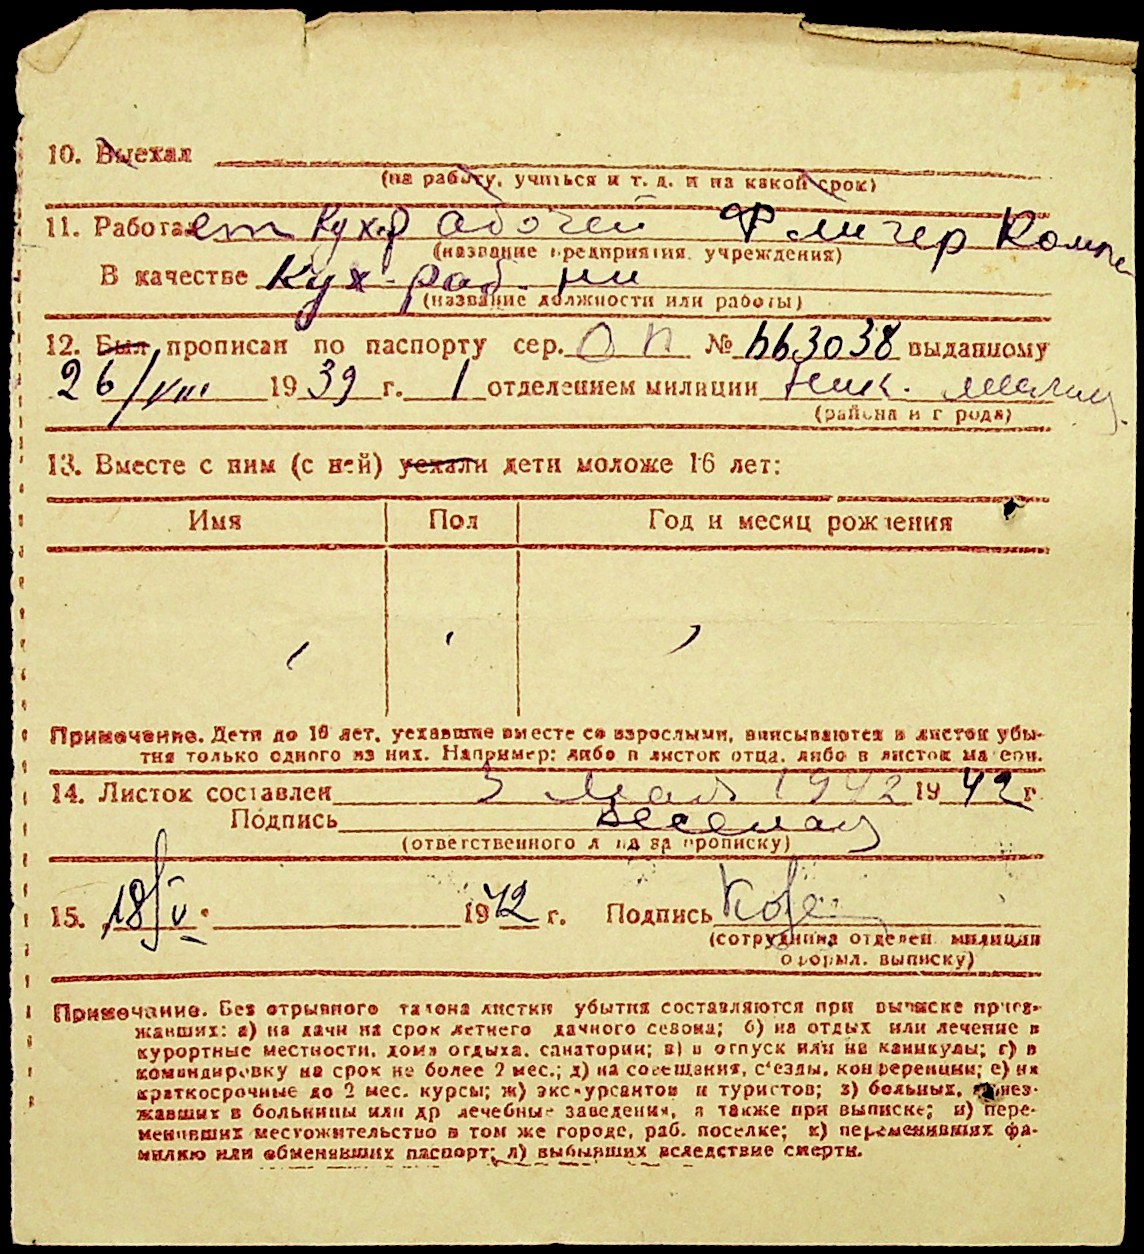 10. Выехал
(на работу, учиться и т. д. и на какой срок)
11. Работает Кух.рабочей Флигер
(название предприятия, учреждения)
В качестве Кух-раб.
(название должности или работы)
12. Был прописан по паспорту сер. ОП № 663038 выданному
26/VIII 1939 г. 1 отделением милиции
(района и города)
13. Вместе с ним (с ней) уехали дети моложе 16 лет:
Имя Пол Год и месяц рождения
Примечание. Дети до 16 лет, уехавшие вместе со взрослыми, вписываются в листок убы-
тия только одного из них. Например: либо в листок отца, либо в листок матери.
14. Листок составлен 5 мая 1942 1942 г
Подпись
(ответственного лица за прописку)
15. 18/V. 1942 г. Подпись
(сотрудника отделен. милиции
оформл. выписку)
Примечание. Без отрывного талона листки убытия составляются при выписке приез-
жавших: а) на дачи на срок летнего дачного сезона; б) на отдых или лечение в
курортные местности, дома отдыха, санатории; в) в отпуск или на каникулы; г) в
командировку на срок не более 2 мес.; д) на совещания, съезды, конференции; е) на
краткосрочные до 2 мес. курсы; ж) экскурсантов и туристов; з) больных, приез-
жавших в больницы или др лечебные заведения, а также при выписке; и) пере-
менивших местожительство в том же городе, раб. поселке; к) переменивших фа-
милию или обменявших паспорт; л) выбывших вследствие смерти.